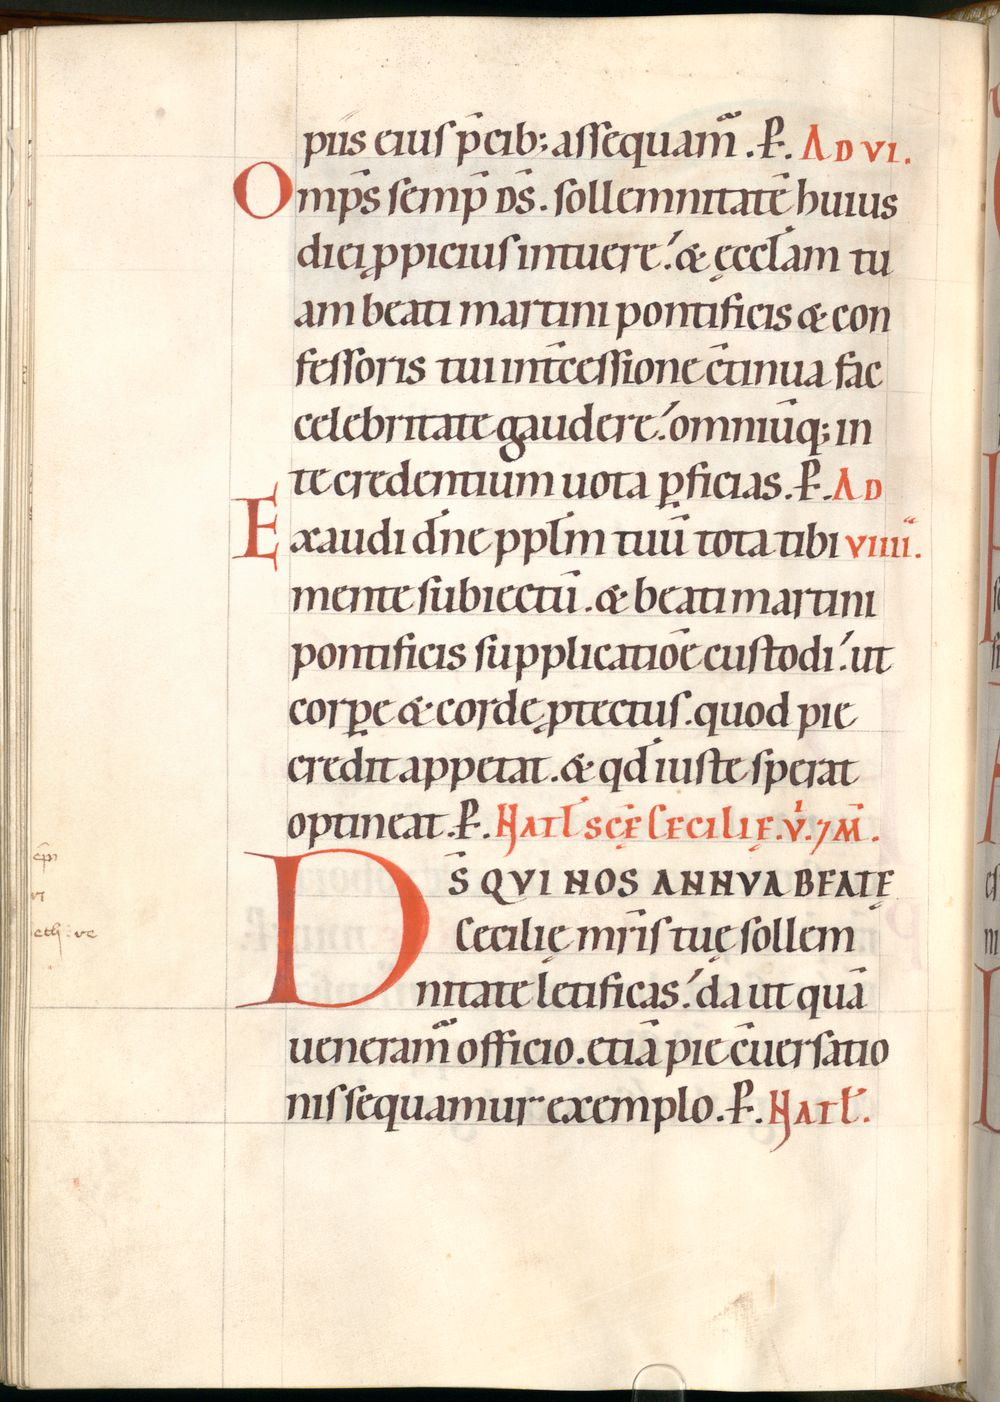 piis eius p̄cib; assequam̄. P̵. AD VI.
Omp̄s semp̄ D̄S. sollemnitatē huius
diei ꝓpicius intuere. & ęccl̄am tu
am beati martini pontificis & con
fessoris tui int̄cessione c̄tinua fac
celebritate gaudere. omniūq; in
te credentium uota ꝑficias. P̵. AD
Exaudi dn̄e ppl̄m tuū tota tibi VIIII.
mente subiectū. & beati martini
pontificis supplicatiōe custodi. ut
corꝑe & corde ꝓtectus. quod pie
credit appetat. & qd̄ iuste sperat
optineat. P̵. NATL̄ SC̄Ę CECILIĘ. V̄. 7 M̄.
D̄S QVI NOS ANNVA BEATĘ
Cecilię mr̄is tuę sollem
nitate letificas. da ut quā
ueneram̄ officio. etiā pie c̄uersatio
nis sequamur exemplo. P̵. NATL̄.
vi